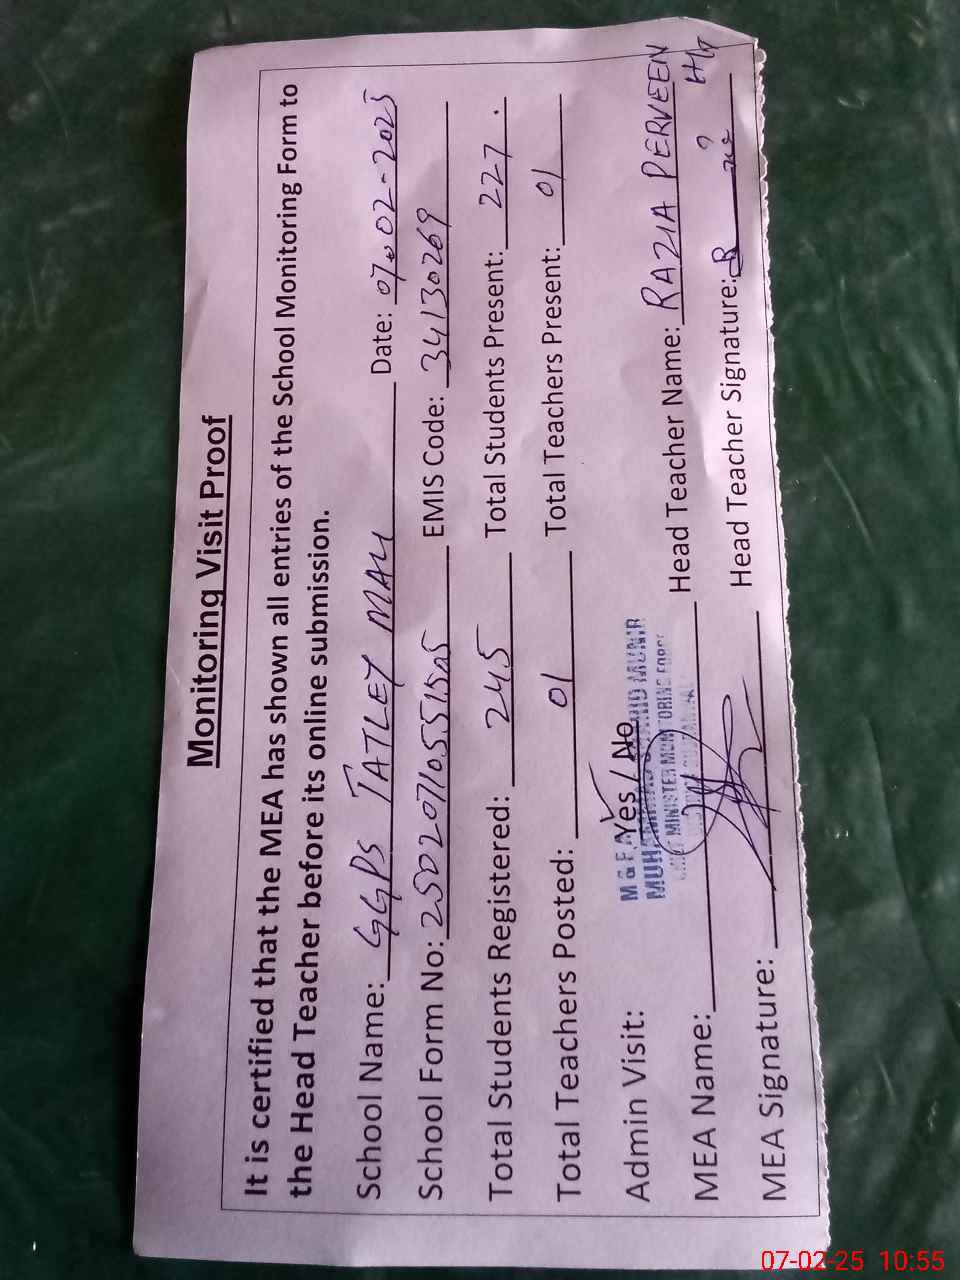 Monitoring Visit Proof
It is certified that the MEA has shown all entries of the School Monitoring Form to
the Head Teacher before its online submission.
School Name: GGPS TATLEY MALI Date: 07-02-2025
School Form No: EMIS Code: 34130269
Total Students Registered: 245 Total Students Present: 227
Total Teachers Posted: 01 Total Teachers Present: 01
Admin Visit: Yes / No
M & E A
MUHAMMAD MUNIR
CHIEF MINISTER MONITORING FORCE
MEA Name: Head Teacher Name: RAZIA PERVEEN
MEA Signature: Head Teacher Signature:
07-02-25 10:55